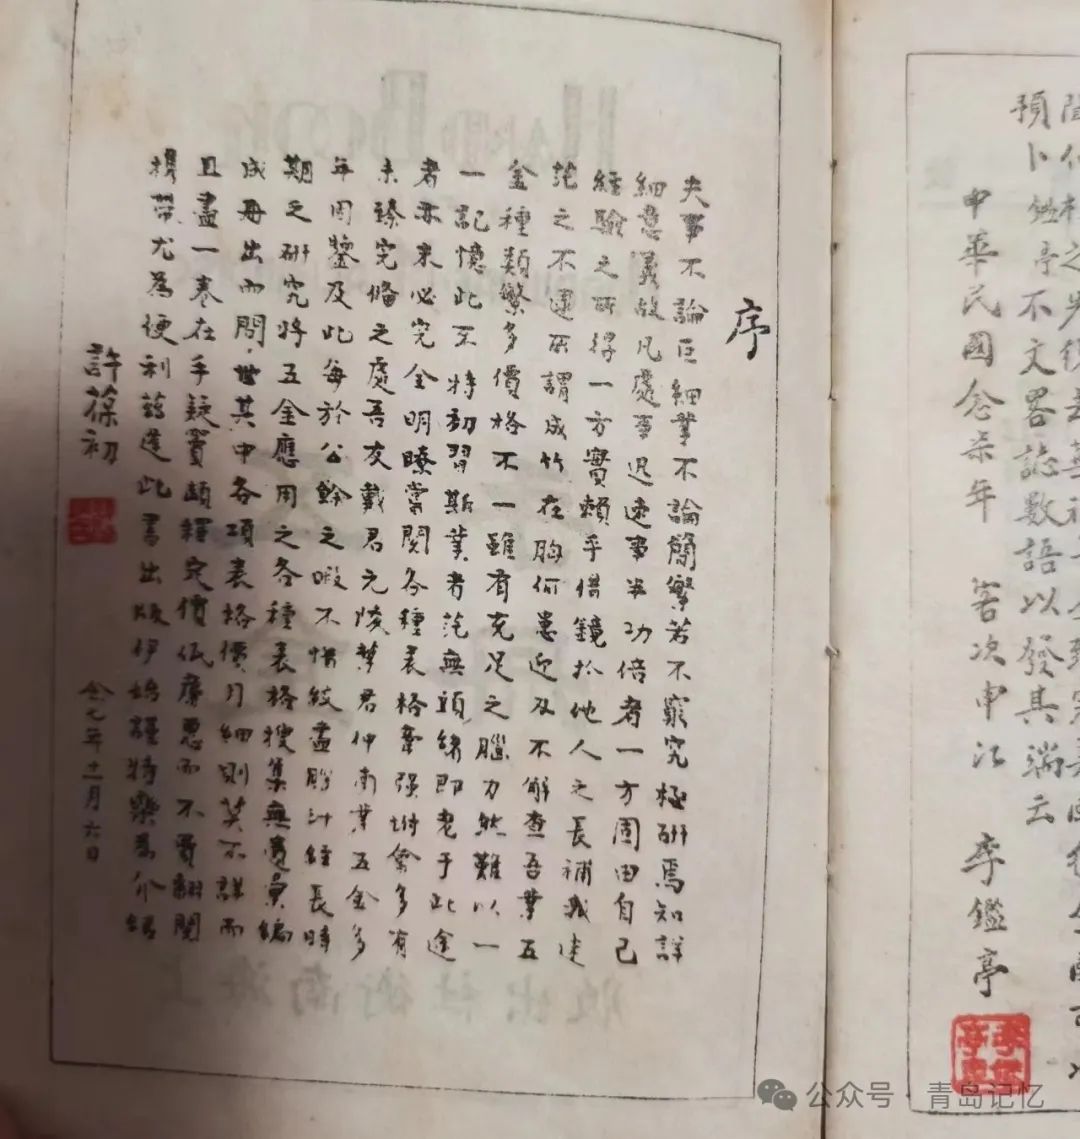 預卜鑑亭不文畧誌數語以發其端云
中華民國念柒年 客次申江 李鑑亭
序
夫事不論巨細業不論簡繁若不窮究極研焉知詳
細意義故凡處事迅速事半功倍者一方固由自己
經驗之所得一方實賴乎借鏡於他人之長補我
之不逮所謂成竹在胸何患近及不解查吾業五
金種類繁多價格不一雖有充足之腦力然難以一
一記憶此不特初習斯業者茫無頭緒即老于此途
者亦未必完全明瞭嘗閱各種表格牽强坿會多有
未臻完備之處吾友戴君元陵 君仲南業五金多
年有鑒及此每於公餘之暇不惜絞盡腦汁經長時
期之研究將五金應用之各種表格搜集無遺彙編
成冊出而問世其中各項表格價目細則莫不詳而
且盡一卷在手疑竇頓釋定價低廉惠而不費翻閱
攜帶尤為便利茲逢此書出版伊始謹特樂為介紹
許葆初
念七年十一月六日
版出社術商海上
HAND BOOK
公众号 · 青岛记忆